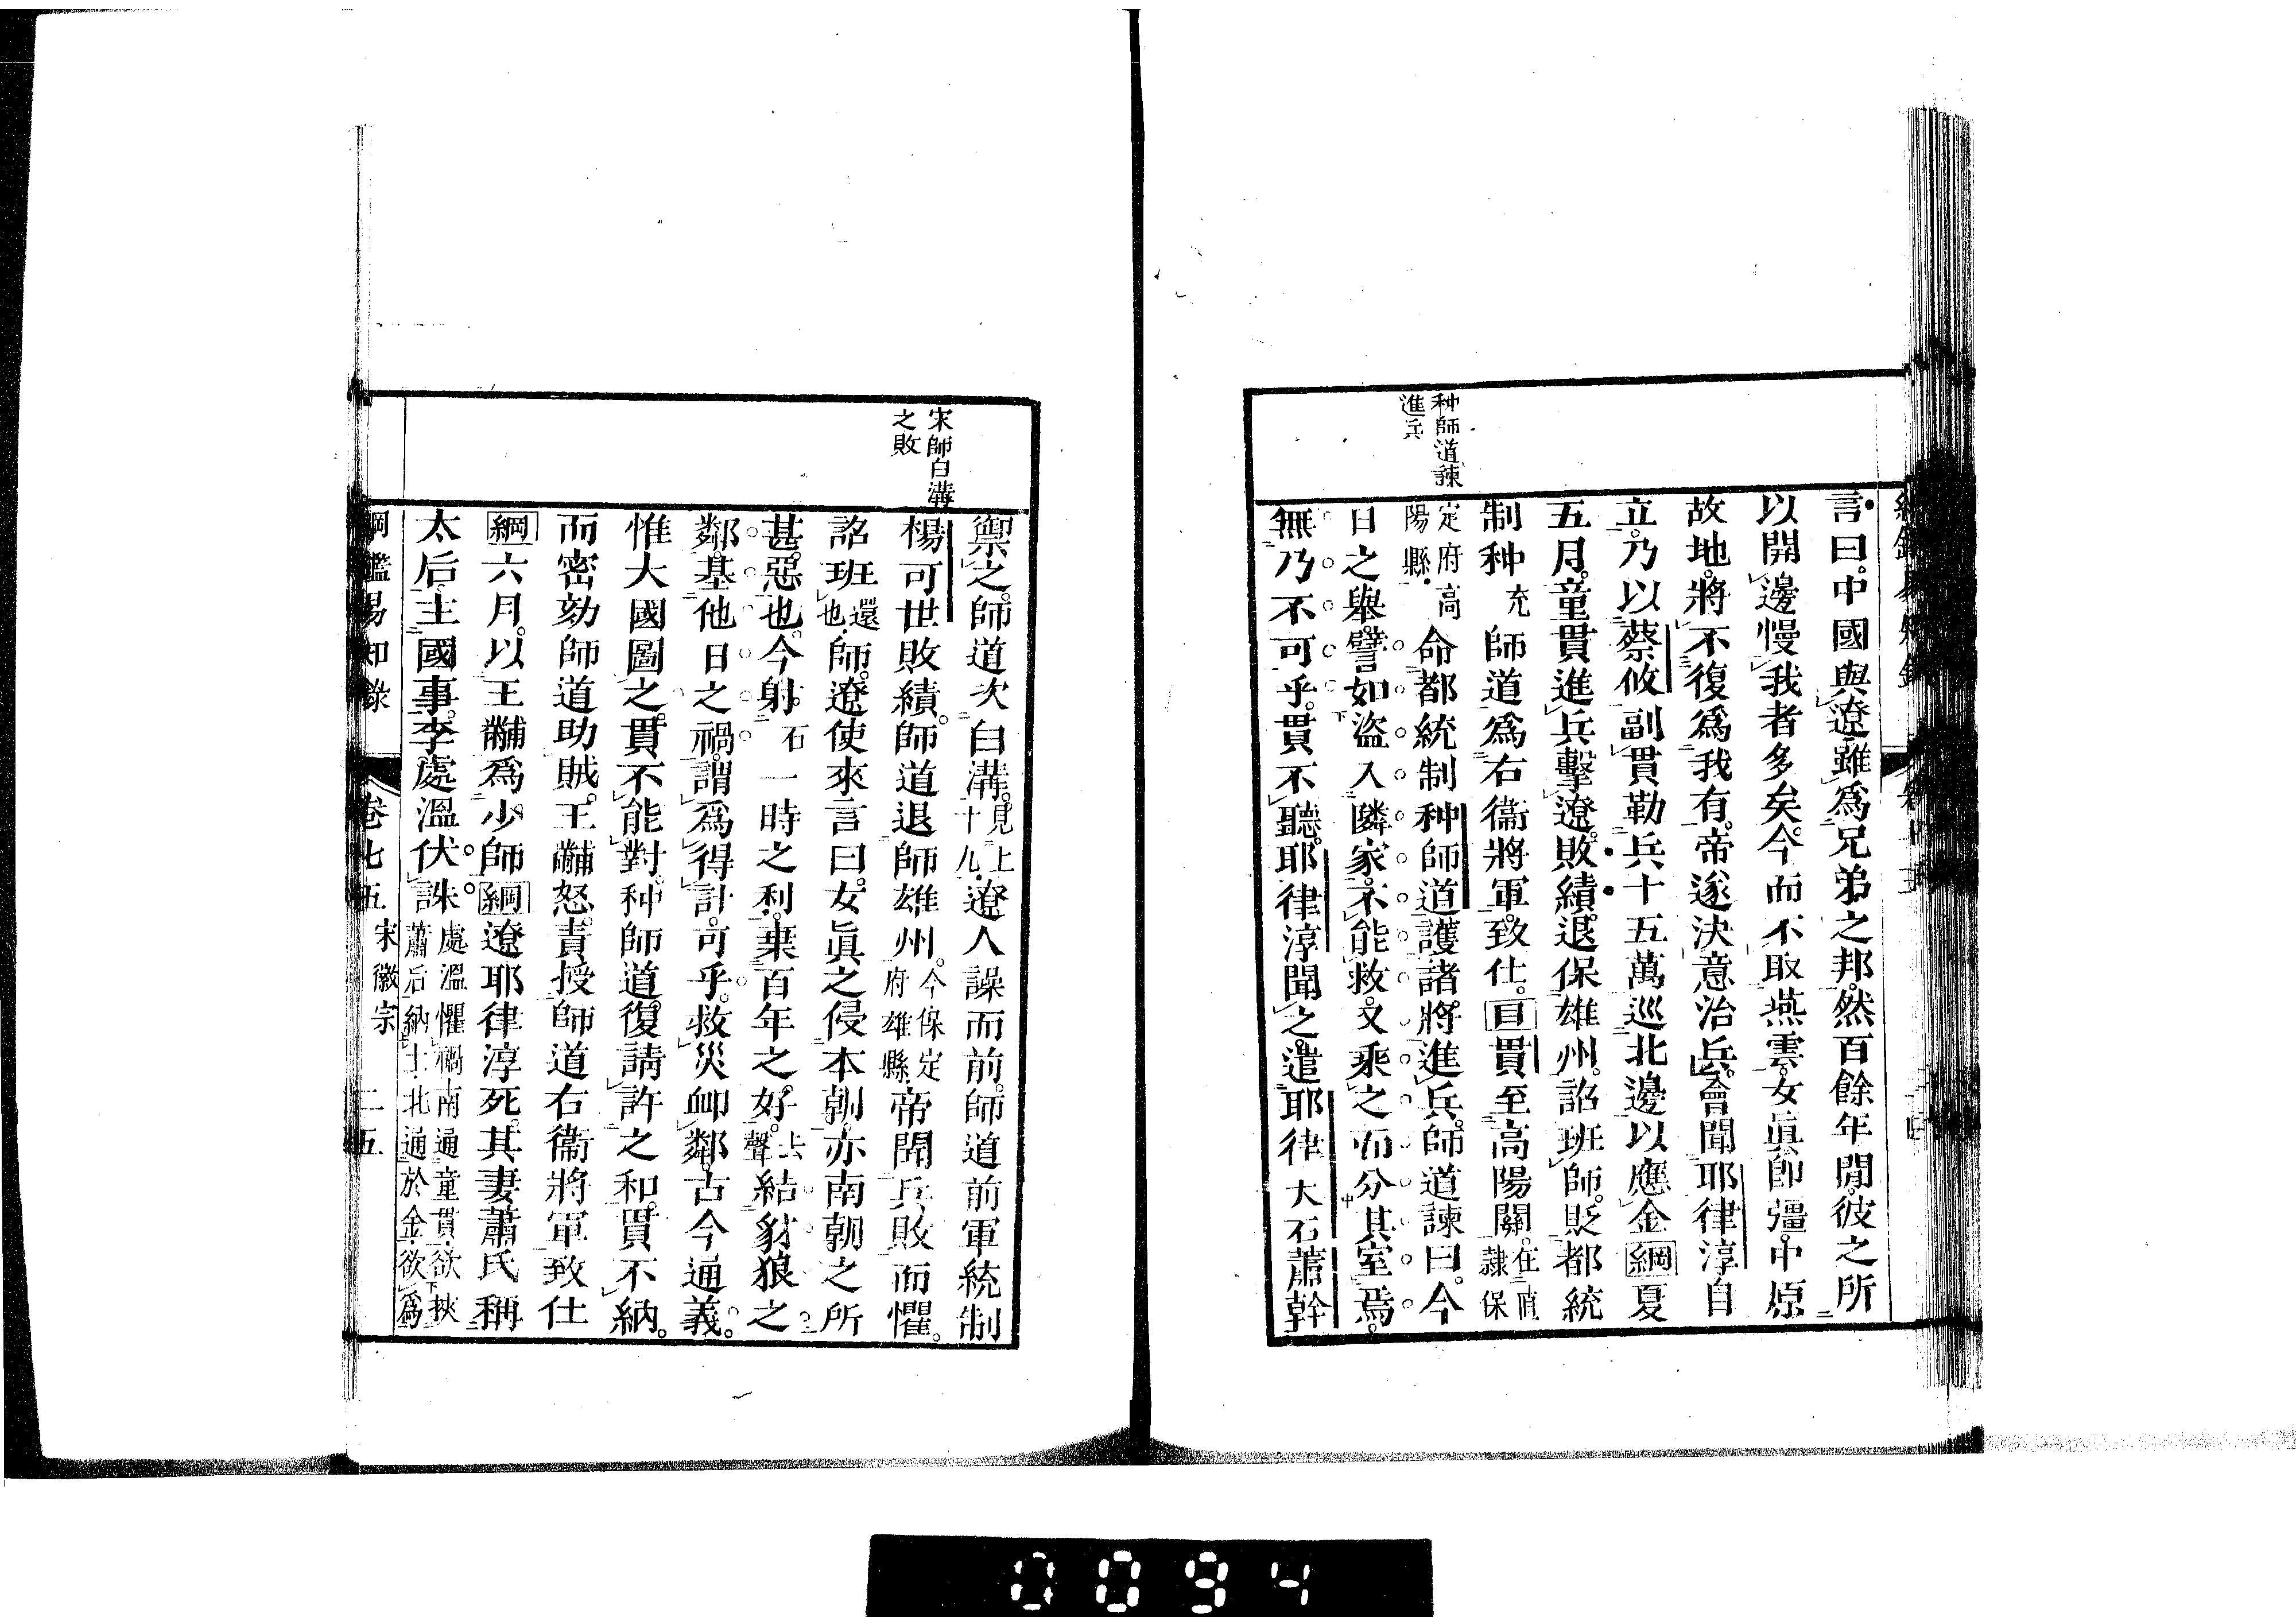 种師道諫
進兵
言曰。中國與遼。雖爲兄弟之邦。然百餘年閒。彼之所
以開邊慢我者多矣。今而不取燕雲。女眞卽彊。中原
故地。將不復爲我有。帝遂決意治兵。會聞耶律淳自
立。乃以蔡攸副貫勒兵十五萬巡北邊以應金綱夏
五月。童貫進兵擊遼。敗績。退保雄州。詔班師。貶都統
制种充師道爲右衞將軍。致仕。目貫至高陽關。在直隷保
定府高陽縣。命都統制种師道護諸將進兵。師道諫曰。今
日之舉。譬如盜入隣家。不能救。又乘之而分其室焉。
無乃不可乎。貫不聽。耶律淳聞之。遣耶律大石蕭幹
宋師白溝
之敗
禦之。師道次白溝。見上十九。遼人譟而前。師道前軍統制
楊可世敗績。師道退師雄州。今保定府雄縣。帝聞兵敗而懼。
詔班還也。師。遼使來言曰。女眞之侵本朝。亦南朝之所
甚惡也。今射石一時之利。棄百年之好。去聲。結豺狼之
鄰。基他日之禍。謂爲得計。可乎。救災卹鄰。古今通義。
惟大國圖之。貫不能對。种師道復請許之和。貫不納。
而密劾師道助賊。王黼怒。責授師道右衞將軍致仕
綱六月。以王黼爲少師。綱遼耶律淳死。其妻蕭氏稱
太后。主國事。李處溫伏誅。處溫懼禍南通童貫。欲挾蕭后納土。北通於金。欲爲
綱鑑易知錄 卷七五 宋徽宗 二五
0094